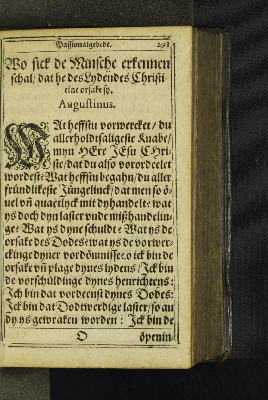 Passionalgebede. 291
Wo sick de Minsche erkennen
schal / dat he des Lydendes Christi
eine orsake sy.
Augustinus.
WAt heffstu vorwercket / du
allerholdtsaligeste Knabe /
myn HEre JEsu Chri-
ste / dat du also vorordeelet
wordest? Wat heffstu begahn / du aller
fründlikeste Jüngelinck / dat men so ö-
uel vn̄ quaetlyck mit dy handelt? wat
ys doch dyn laster vnde mißhandelin-
ge? Wat ys dyne schuldt? Wat ys de
orsake des Dodes? wat ys de vorwer-
ckinge dyner vordömnisse? o ick bin de
orsake vn̄ plage dynes lydens / Ick bin
de vorschüldinge dynes henrichtens:
Ich bin dat vordeenst dynes Dodes:
Ick bin dat Dodtwerdige laster / so an
dy ys gewraken worden: Ick bin de
O öpenin